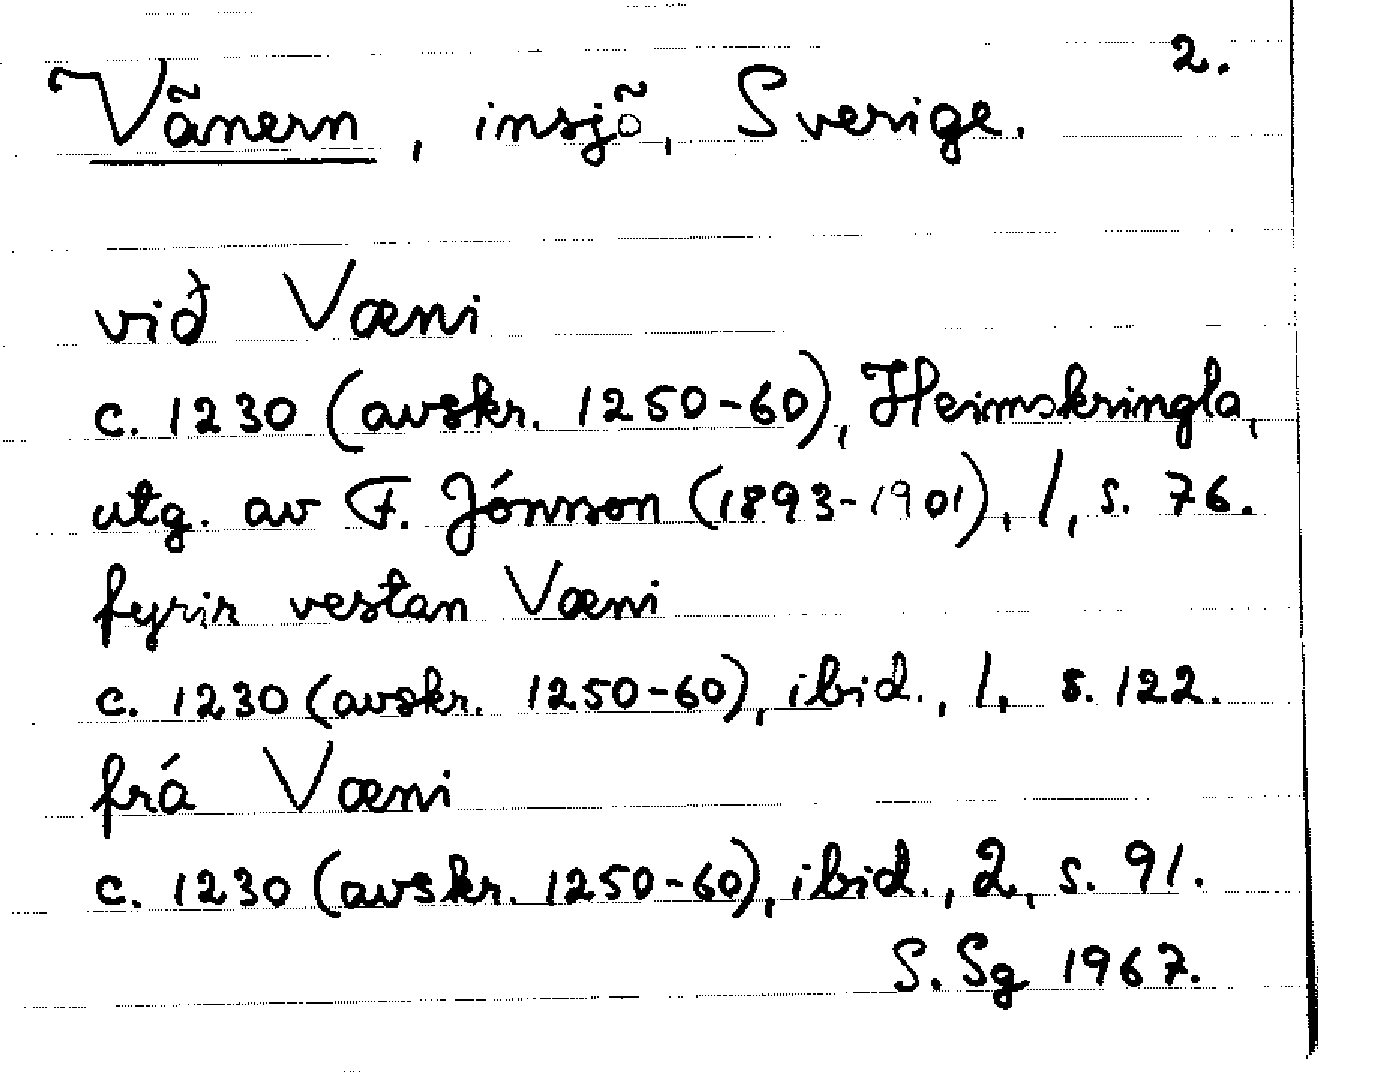 2.
Vänern, insjö, Sverige.
við Væni
c. 1230 (avskr. 1250-60), Heimskringla,
utg. av F. Jónsson (1893-1901), 1, s. 76.
fyrir vestan Væni
c. 1230 (avskr. 1250-60), ibid., 1, s. 122.
frá Væni
c. 1230 (avskr. 1250-60), ibid., 2, s. 91.
S. Sg 1967.